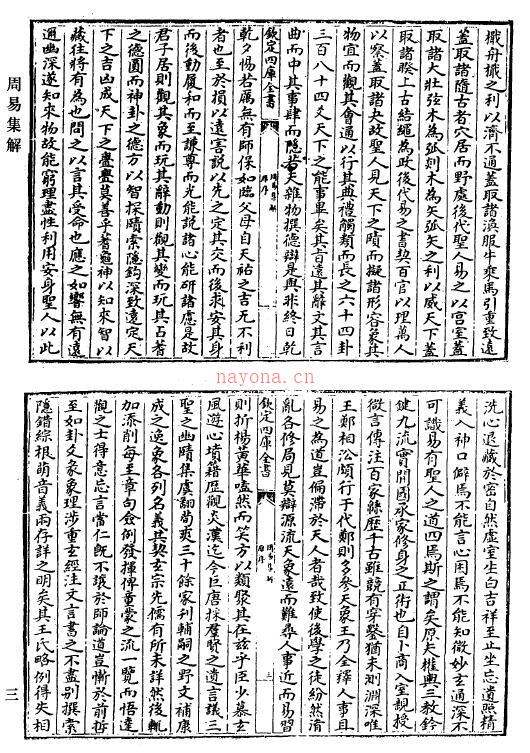 檝舟檝之利以濟不通蓋取諸渙服牛乗馬引重致遠
蓋取諸隨古者穴居而野處後代聖人易之以宫室蓋
取諸大壯弦木為弧剡木為矢弧矢之利以威天下蓋
取諸睽上古結繩為政後代易之書契百官以理萬人
以察蓋取諸夬故聖人見天下之賾而擬諸形容象其
物宜而觀其會通以行其典禮觸類而長之六十四卦
三百八十四爻天下之能事畢矣其旨遠其辭文其言
曲而中其事肆而隱若夫雜物撰德辯是與非終日乾
欽定四庫全書
周易集解
原序
乾夕惕若厲無有師保如臨父母自天祐之吉无不利
者也至於損以遠害説以先之定其交而後求安其身
而後動履和而至謙尊而光能説諸心能研諸慮是故
君子居則觀其象而玩其辭動則觀其變而玩其占蓍
之德圓而神卦之德方以智探賾索隱鈎深致遠定天
下之吉凶成天下之亹亹莫善乎蓍龜神以知來智以
藏往將有為也問之以言其受命也應之如響無有遠
邇幽深遂知來物故能窮理盡性利用安身聖人以此
周易集解
nayona.cn
洗心退藏於密自然虛室生白吉祥至止坐忘遺照精
義入神口僻焉不能言心困焉不能知微妙玄通深不
可識易有聖人之道四焉斯之謂矣原夫權輿三教鈐
鍵九流實開國承家修身之正術也自卜商入室親授
微言傳注百家緜歴千古雖競有穿鑿猶未測淵深唯
王鄭相沿頗行于代鄭則多參天象王乃全釋人事且
易之為道豈偏滯於天人者哉致使後學之徒紛然淆
亂各修局見莫辯源流天象遠而難尋人事近而易習
欽定四庫全書
周易集解
原序
則折楊黄華嗑然而笑方以類聚其在兹乎臣少慕玄
風遊心墳籍歴觀炎漢迄今巨唐採羣賢之遺言議三
聖之幽賾集虞翻荀爽三十餘家刋輔嗣之野文補康
成之逸象各列名義共契玄宗先儒有所未詳然後輒
加添削每至章句僉例發揮俾童蒙之流一覽而悟達
觀之士得意忘言當仁既不讓於師論道豈慚於前哲
至如卦爻彖象理涉重玄經注文言書之不盡别撰索
隱錯綜根萌音義兩存詳之明矣其王氏略例得失相
三